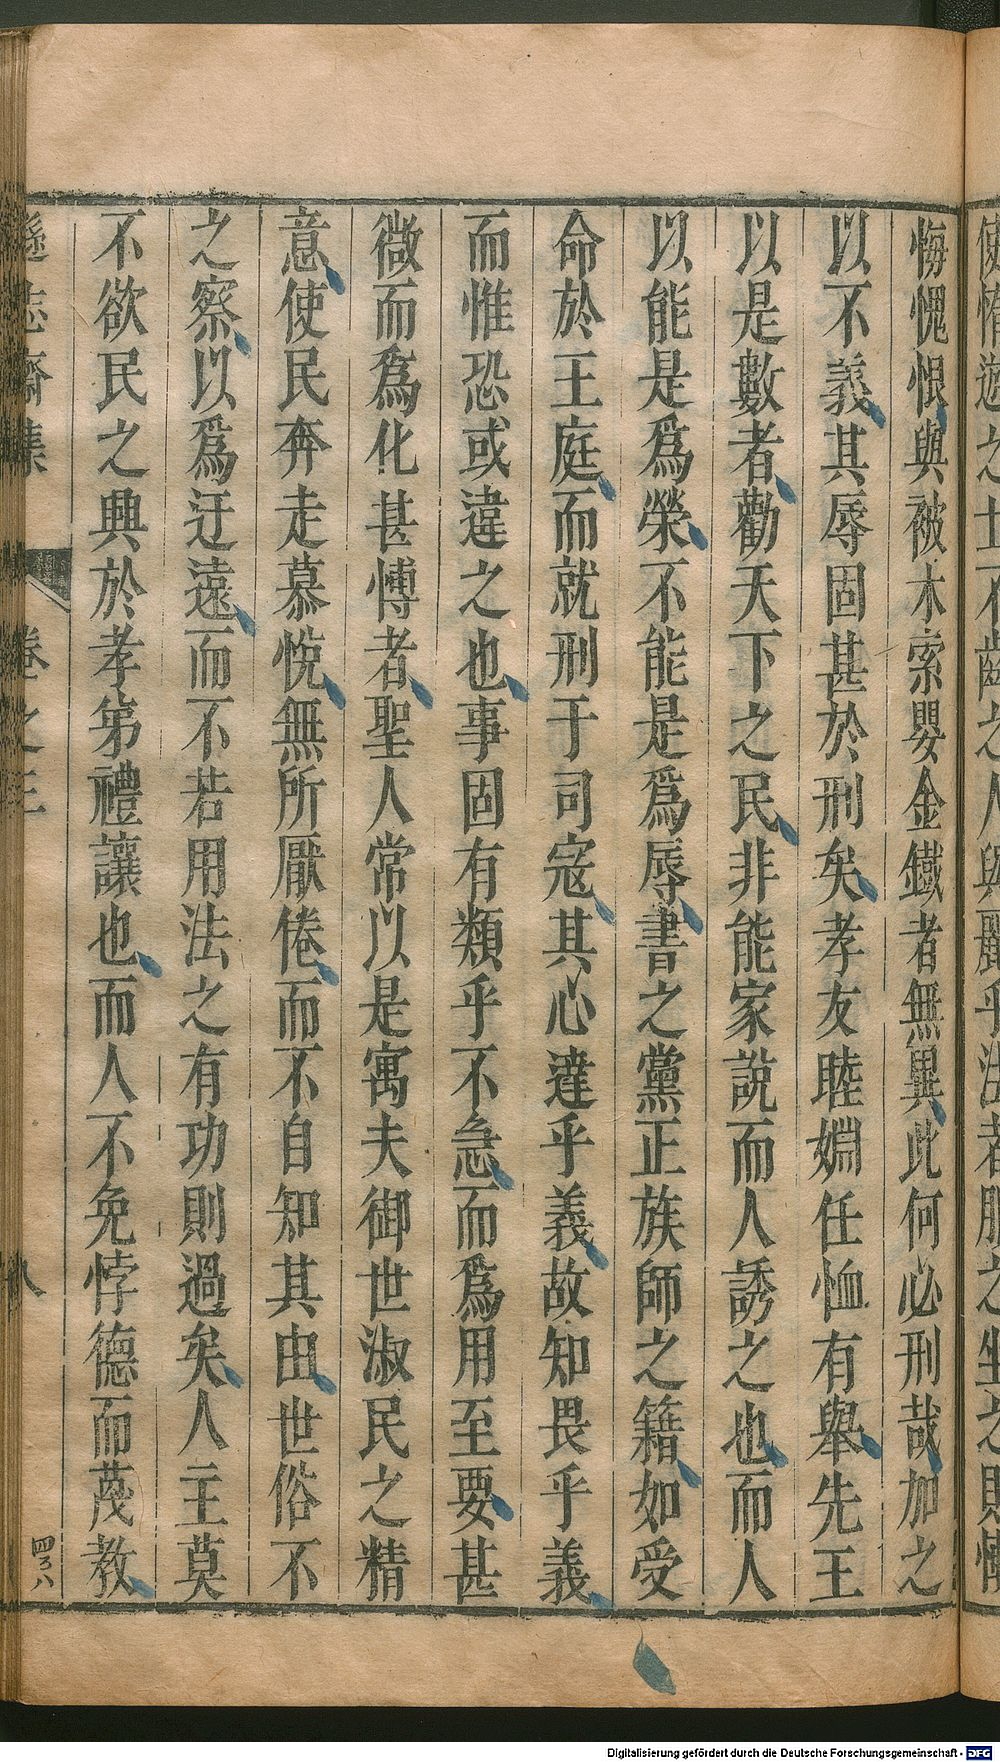 悔愧恨與被木索嬰金鐵者無異此何必刑哉加之
以不義其辱固甚於刑矣孝友睦婣任恤有舉先王
以是數者勸天下之民非能家說而人誘之也而人
以能是爲榮不能是爲辱書之黨正族師之籍如受
命於王庭而就刑于司寇其心達乎義故知畏乎義
而惟恐或違之也事固有類乎不急而爲用至要甚
微而爲化甚愽者聖人常以是寓夫御世淑民之精
意使民奔走慕悅無所厭倦而不自知其由世俗不
之察以爲迂遠而不若用法之有功則過矣人主莫
不欲民之興於孝弟禮讓也而人不免悖德而蔑教
遜志齋集
卷之三
八
四ヲ八
Digitalisierung gefördert durch die Deutsche Forschungsgemeinschaft - DFG